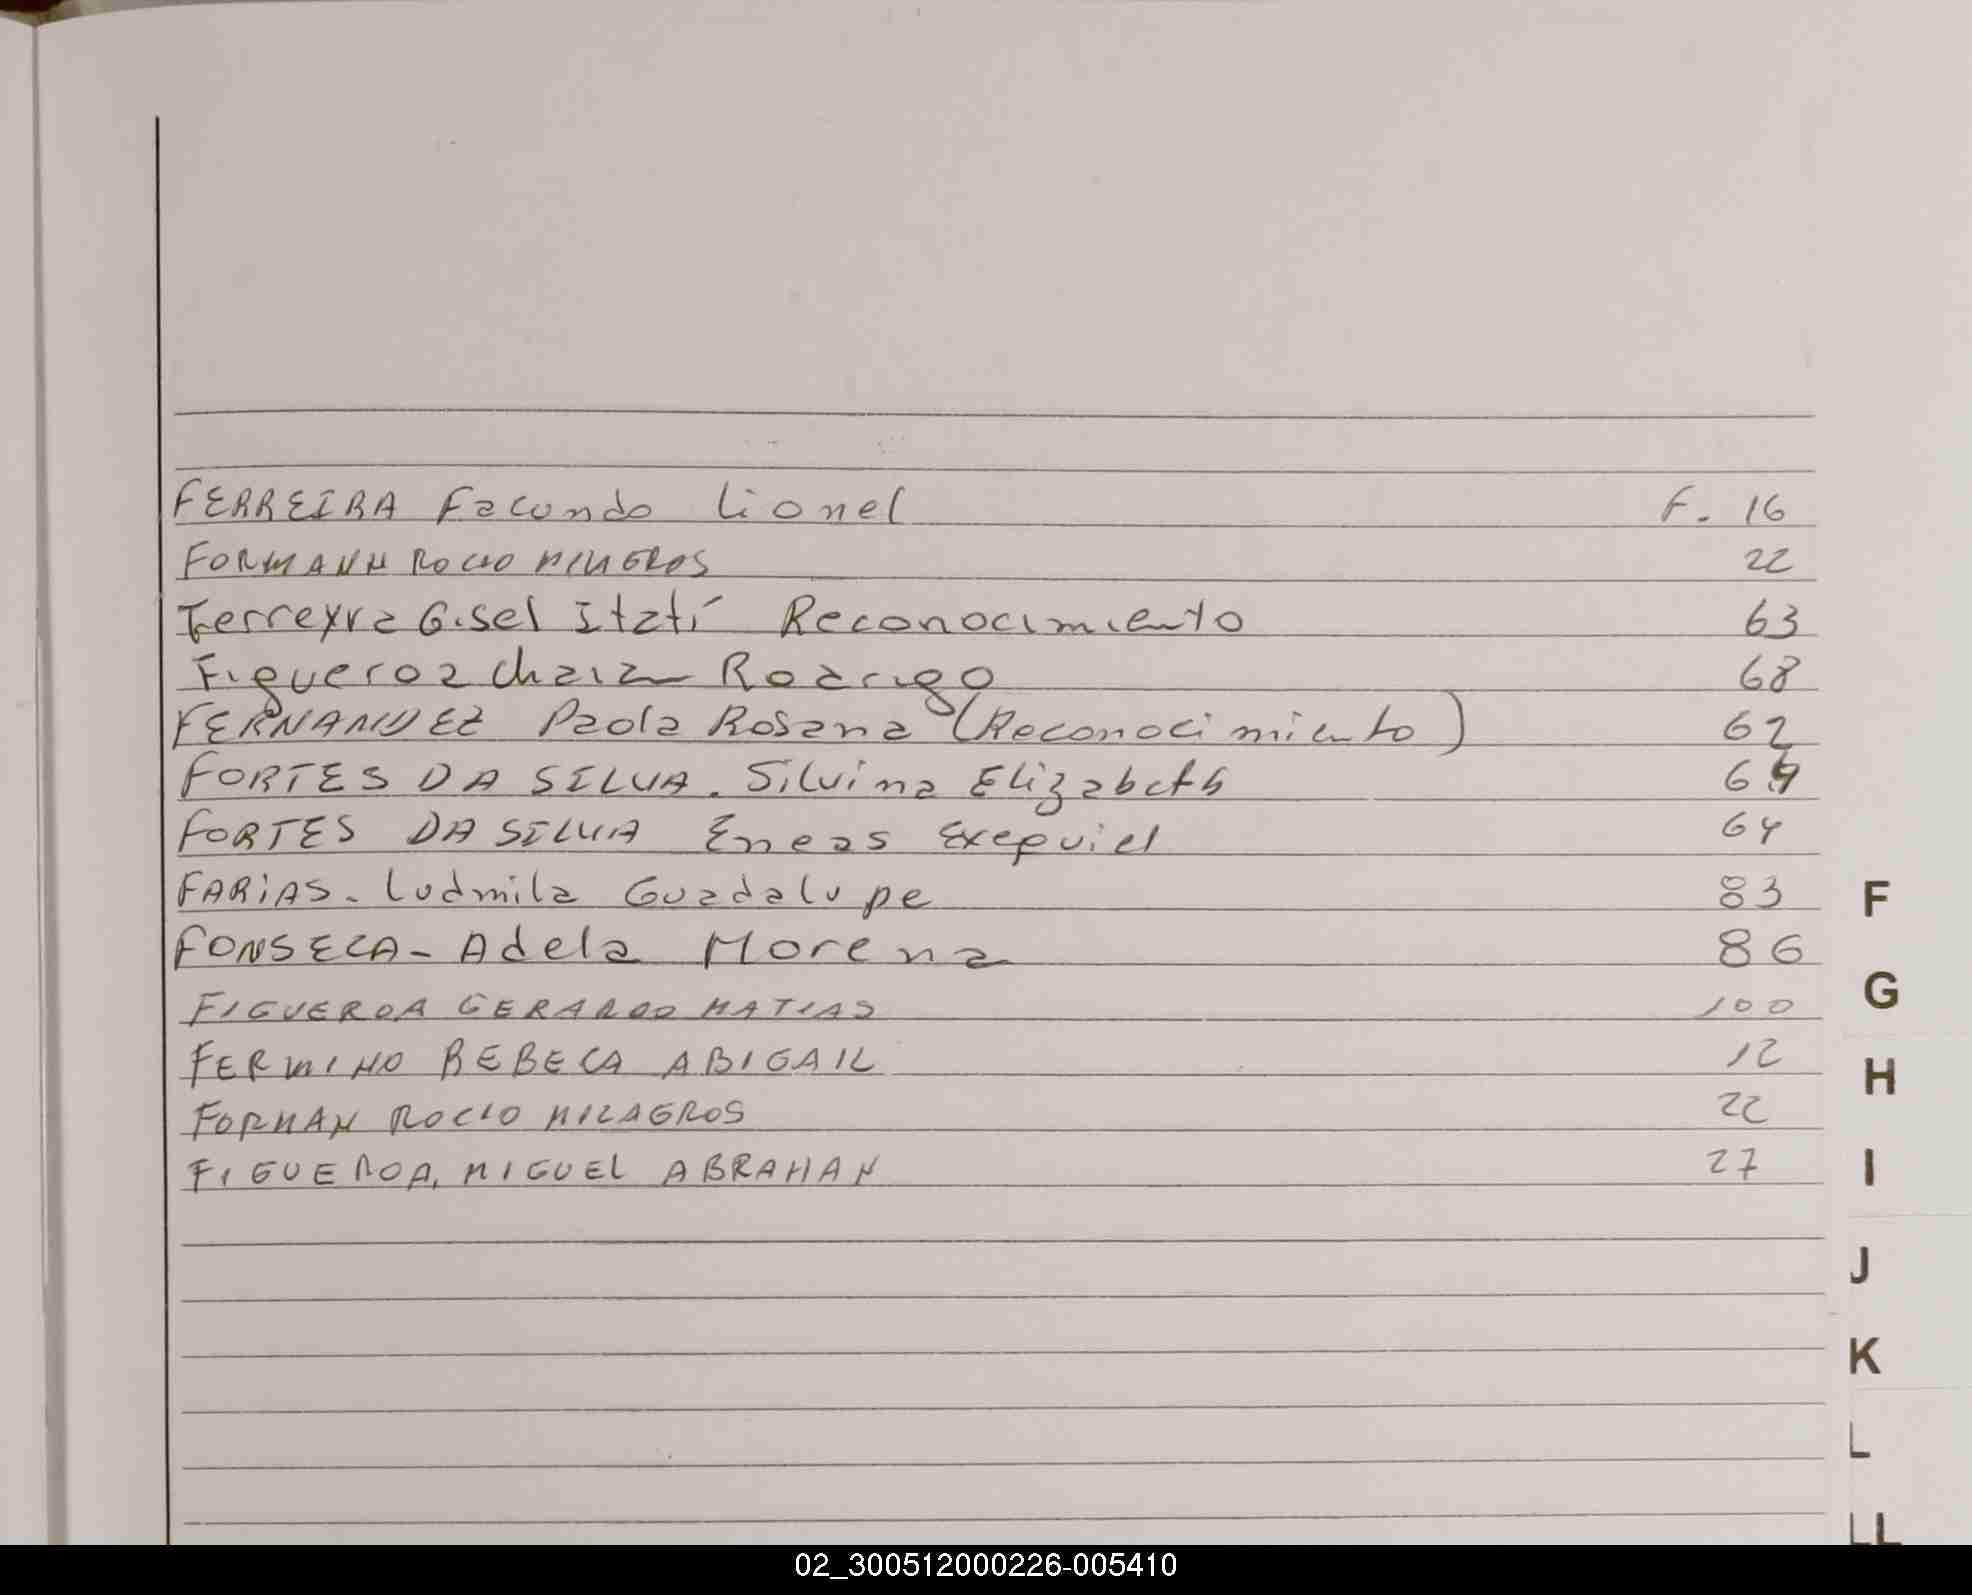 FERREIRA Facundo Lionel F. 16
FORMANN ROCIO MILAGROS 22
Ferreyra Gisel Itatí Reconocimiento 63
Figueroa Rodrigo 68
FERNANDEZ Paola Rosana (Reconocimiento) 62
FORTES DA SILVA. Silvina Elizabeth
FORTES DA SILVA Eneas Exequiel 64
FARIAS - Ludmila Guadalupe 83
FONSECA - Adela Morena 86
FIGUEROA GERARDO MATIAS 100
FERMINO REBECA ABIGAIL 12
FORMAN ROCIO MILAGROS 22
FIGUEROA, MIGUEL ABRAHAN 27
F
G
H
I
J
K
L
LL
02_300512000226-005410